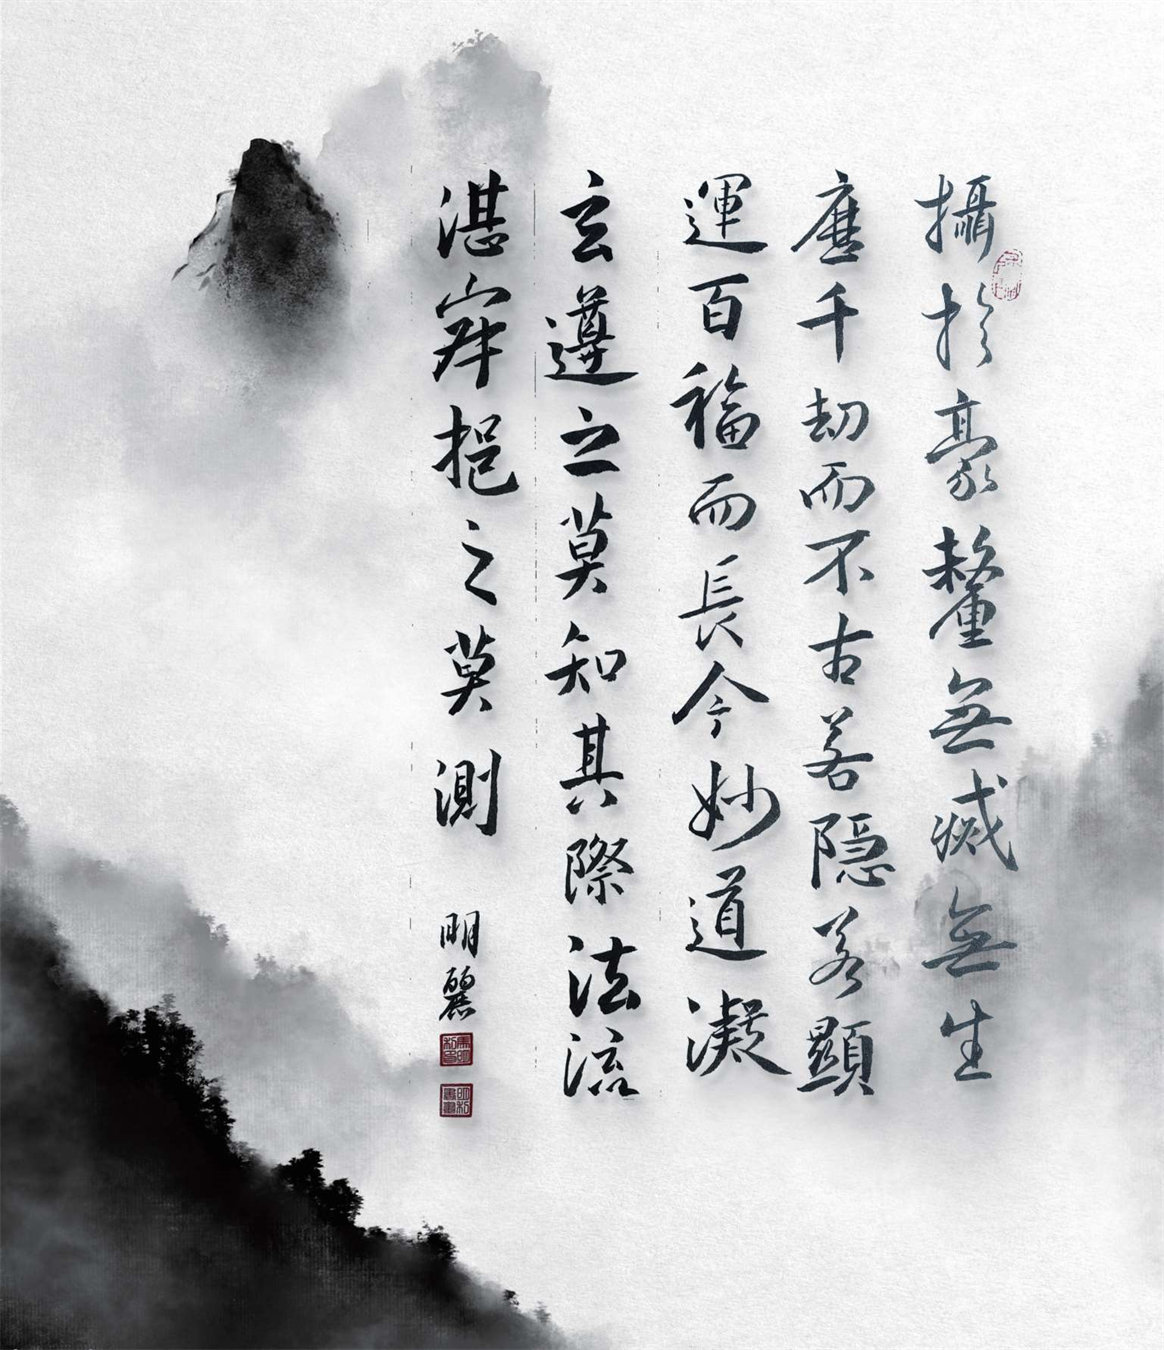 攝於豪釐無滅無生
歷千劫而不古若隱若顯
運百福而長今妙道凝
玄遵之莫知其際法流
湛寂挹之莫測
明麗